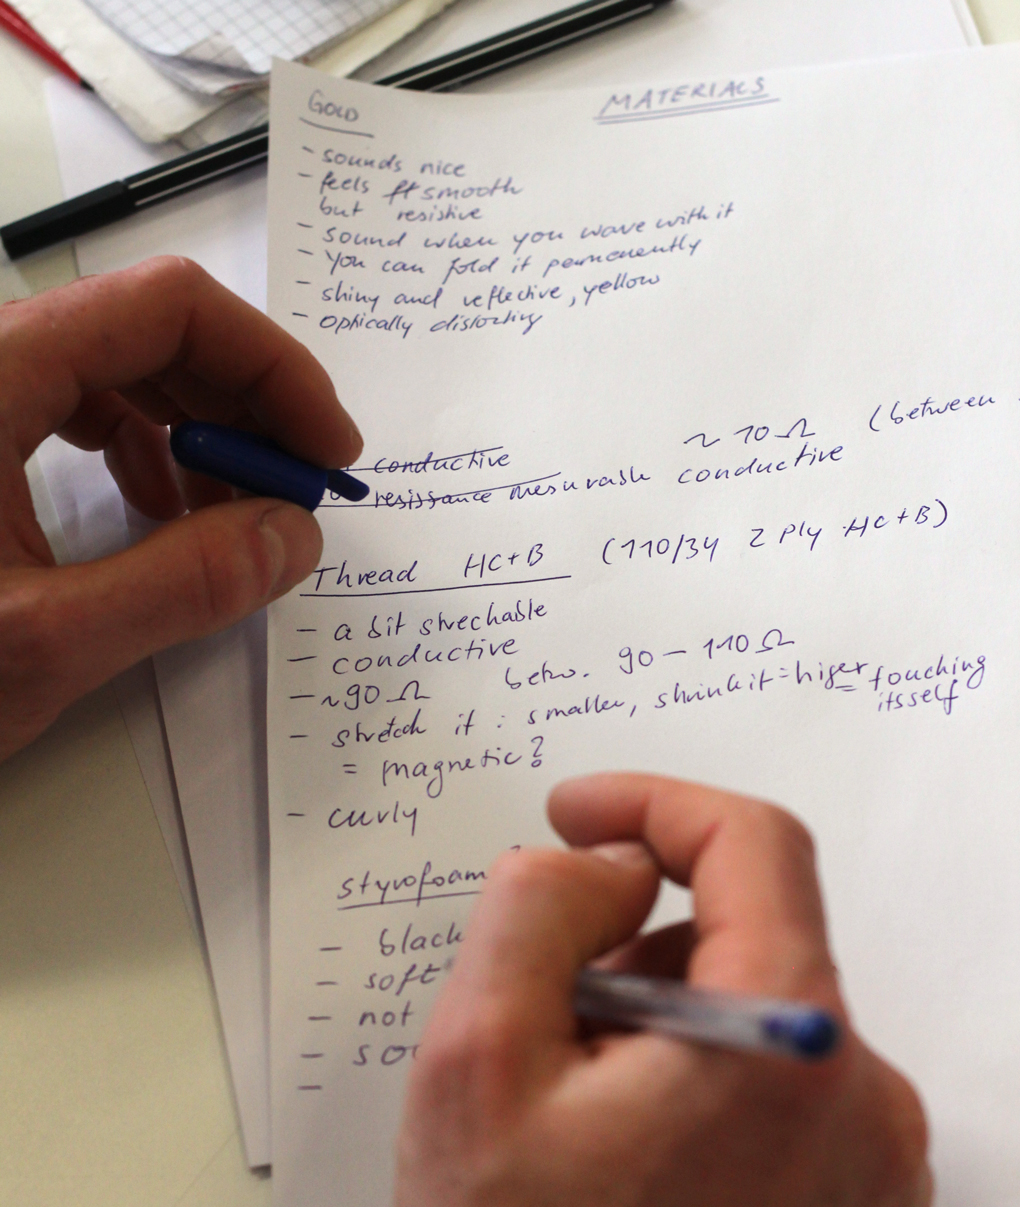 MATERIALS
GOLD
- sounds nice
- feels smooth
but resistive
- sound when you wave with it
- You can fold it permanently
- shiny and reflective, yellow
- optically distorting
conductive
~ 10 Ω (between
resissance mesurable conductive
Thread HC+B (110/34 2 Ply HC+B)
- a bit strechable
- conductive
- ~90 Ω betw. 90 - 110 Ω
- stretch it : smaller, shrink it = higer touching
itsself
= magnetic?
- curly
styrofoam
- black
- soft
- not
-
-